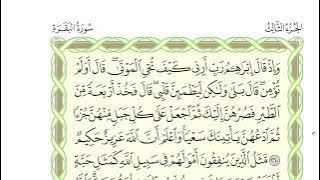 الجزء الثالث
سورة البقرة
وإذ قال إبرهم رب أرني كيف تحي الموتى قال أولم
تؤمن قال بلى ولكن ليطمئن قلبي قال فخذ أربعة من
الطير فصرهن إليك ثم اجعل على كل جبل منهن جزءا
ثم ادعهن يأتينك سعيا واعلم أن الله عزيز حكيم
مثل الذين ينفقون أمولهم في سبيل الله كمثل حبة